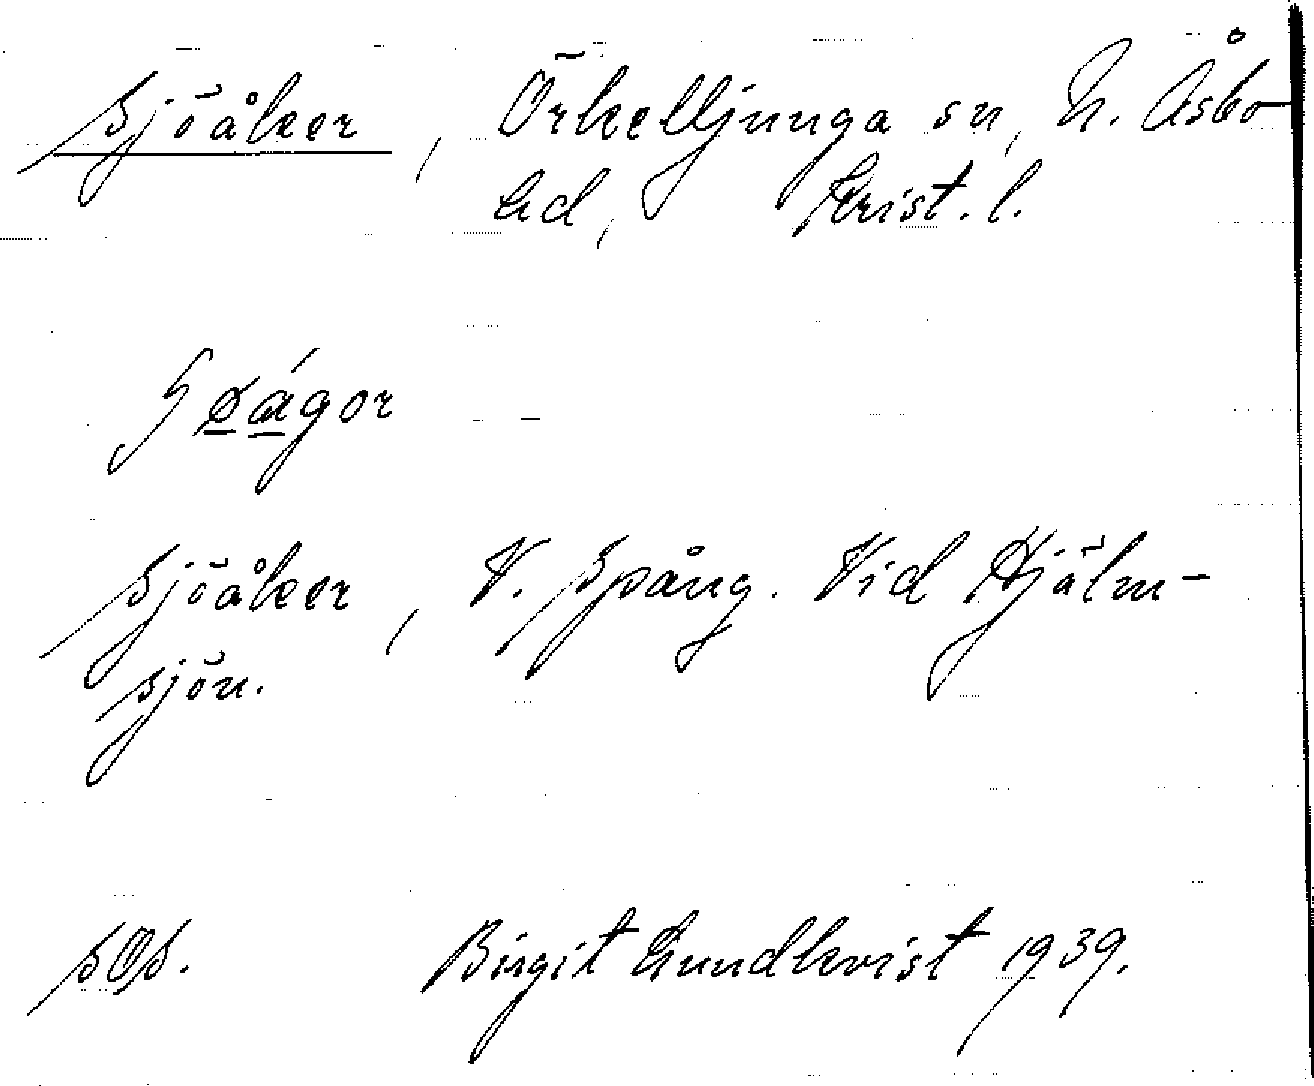 Sjöåker, Örkelljunga sn, N. Åsbo
hd, Krist. l.
Sjöåker, V. Spång. Vid Hjälm-
sjön.
SOS. Birgit Lundkvist 1939.